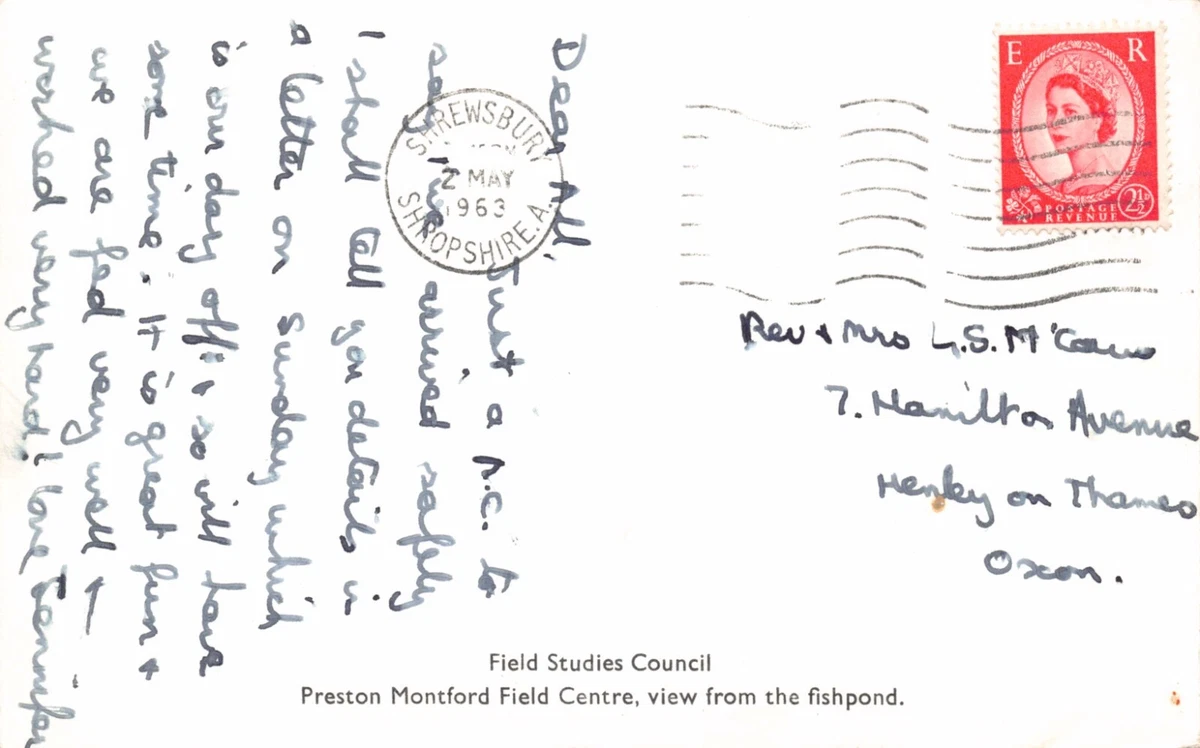 Dear All,
Just a p.c. to
say I've arrived safely
I shall tell you details in
a letter on Sunday which
is our day off & so will have
some time. It is great fun +
we are fed very well +
worked very hard! love Jennifer
SHREWSBURY
2 MAY
1963
SHROPSHIRE.A.
E R
POSTAGE 2½D
REVENUE
Rev + Mrs L.S. M'Caw
7. Hamilton Avenue
Henley on Thames
Oxon.
Field Studies Council
Preston Montford Field Centre, view from the fishpond.